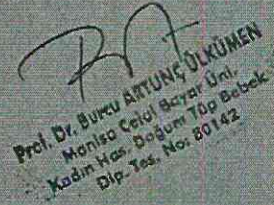 Prof. Dr. Burcu ARTUNÇ ÜLKÜMEN
Manisa Celal Bayar Üni.
Kadın Has. Doğum Tüp Bebek
Dip. Tes. No: 80142